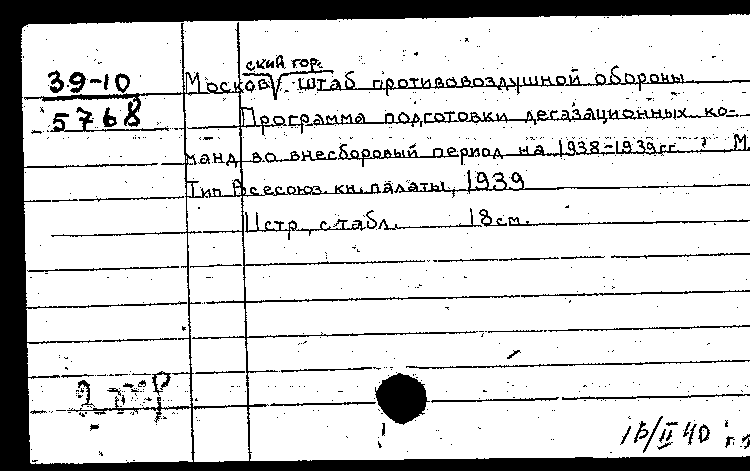 39-10
5768
ский гор.
Москов штаб противовоздушной обороны
Программа подготовки дегазационных ко-
манд во внесборовый период на 1938-1939гг. М
Тип Всесоюз. кн. палаты, 1939
стр, с табл. 18 см.
40